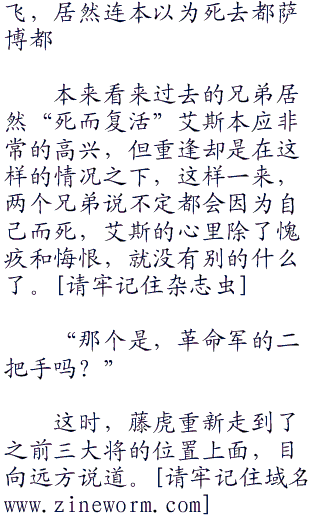 飞，居然连本以为死去都萨
博都
本来看来过去的兄弟居
然“死而复活”艾斯本应非
常的高兴，但重逢却是在这
样的情况之下，这样一来，
两个兄弟说不定都会因为自
己而死，艾斯的心里除了愧
疚和悔恨，就没有别的什么
了。[请牢记住杂志虫]
“那个是，革命军的二
把手吗？”
这时，藤虎重新走到了
之前三大将的位置上面，目
向远方说道。[请牢记住域名
www.zineworm.com]